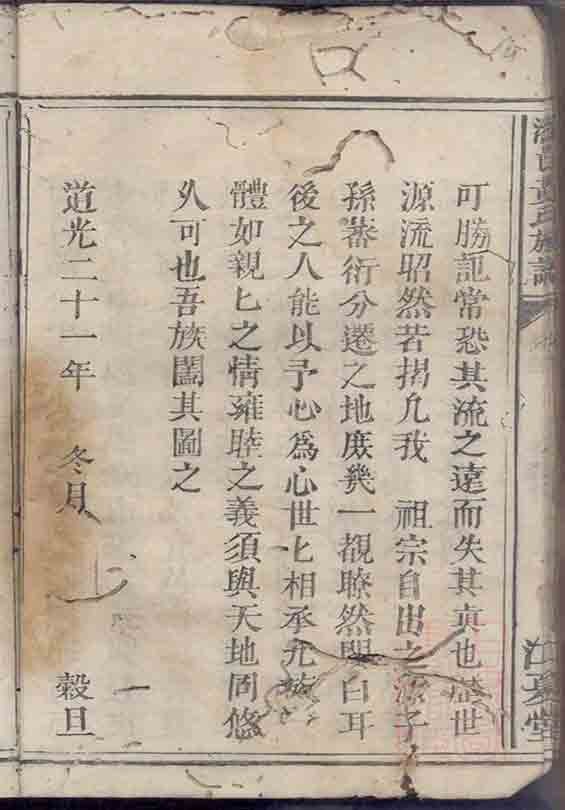 可勝記常恐其流之遠而失其真也歷世
源流昭然若揭凡我 祖宗自出之 子
孫蕃衍分遷之地庶幾一覩瞭然明白耳
後之人能以予心為心世匕相承尤
體如親匕之情雍睦之義須與天地同悠
久可也吾族闔其圖之
道光二十一年 冬月 上 穀旦
黃氏族譜
江夏堂